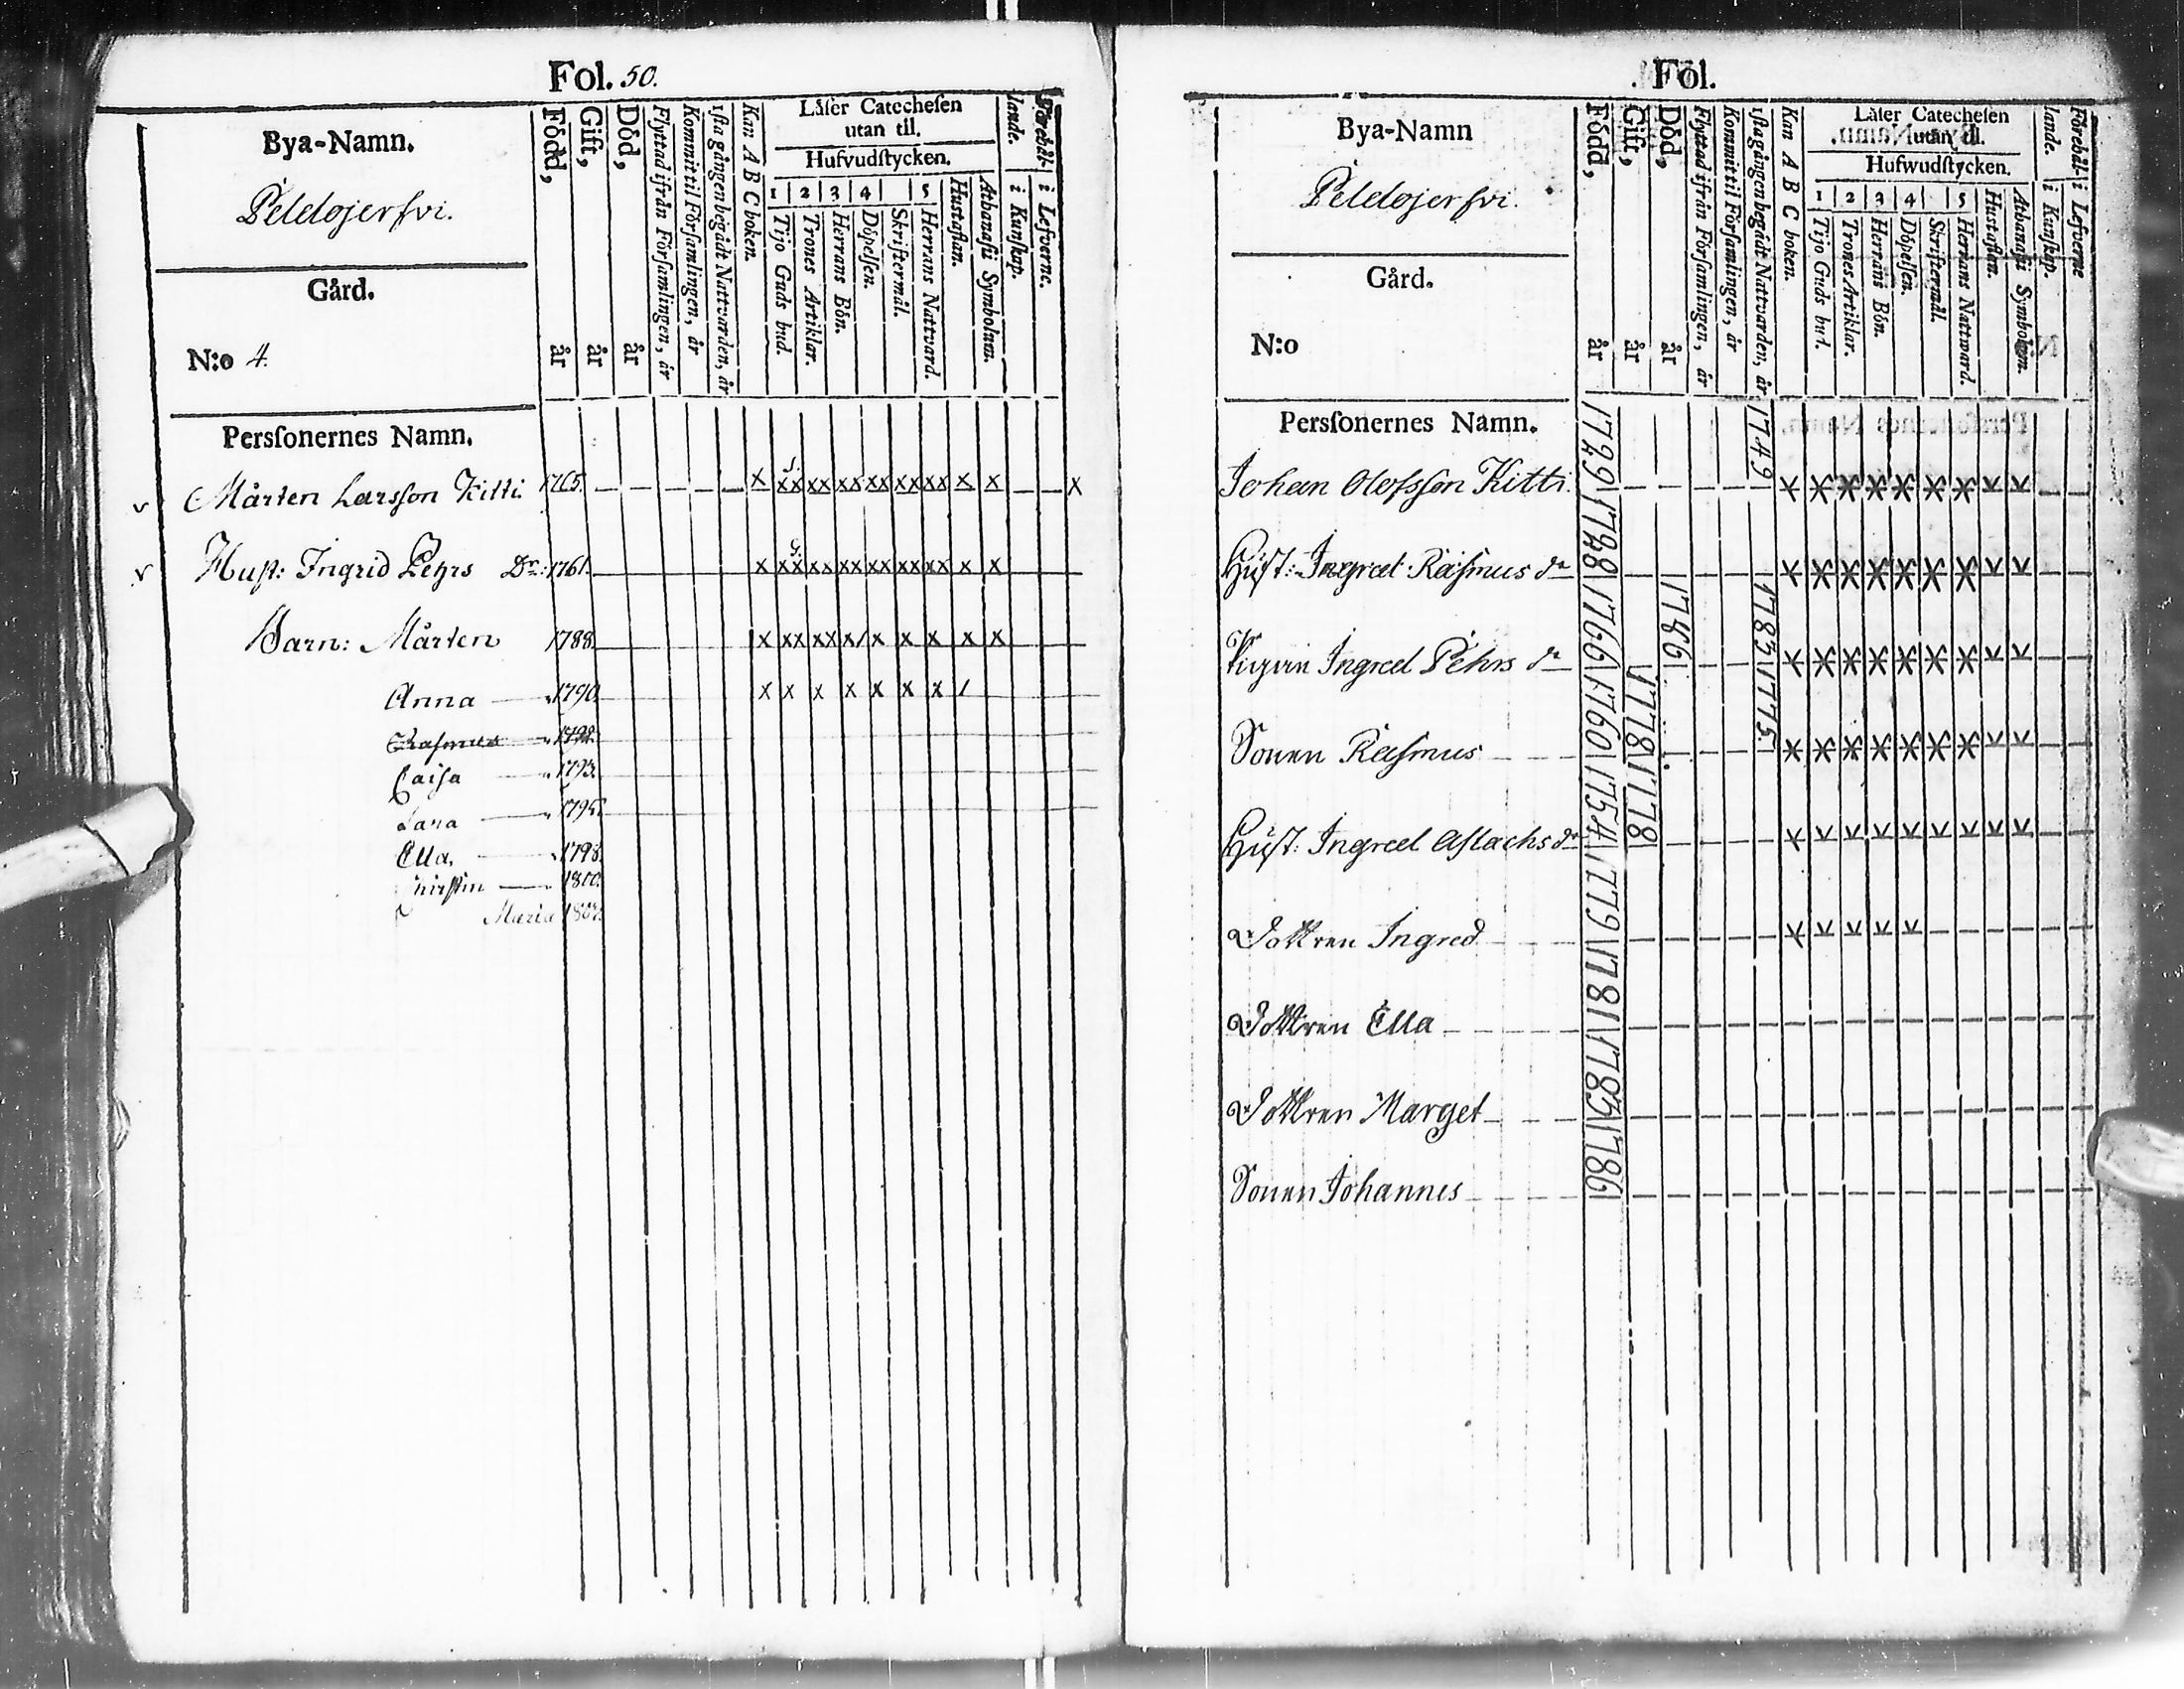 Fol. 50.
Bya-Namn.
Peldojerfvi.
Gård.
N:o 4.
Född, år
Gift, år
Död, år
Flyttad ifrån Församlingen, år
Kommit til Församlingen, år
1sta gången begådt Nattvarden, år
Kan A B C boken.
Låser Catechesen
utan til.
Hufvudstycken.
1 2 3 4 5
Tijo Guds bud.
Trones Artiklar.
Herrans Bön.
Döpelsen.
Skriftermål.
Herrans Nattvard.
Hustaflan.
Athanasii Symbolum.
Förehållande.
i Kunskap.
i Lefverne.
Personernes Namn.
Mårten Larsson Kitti 1765. x xx xx xx xx xx xx x x x
Hust: Ingrid Pehrs Dr: 1761. x xx xx xx xx xx xx x x
Barn: Mårten 1788. x xx xx x/ x x x x x
Anna 1790. x x x x x x x /
Rasmus 1792.
Caisa 1793.
Lara 1795.
Ella 1798.
1800.
Maria
Fol.
Bya-Namn
Peldojerfvi.
Gård.
N:o
Född, år
Gift, år
Död, år
Flyttad ifrån Församlingen, år
Kommit til Församlingen, år
1sta gången begådt Nattvarden, år
Kan A B C boken.
Låser Catechesen
utan til.
Hufwudstycken.
1 2 3 4 5
Tijo Guds bud.
Trones Artiklar.
Herrans Bön.
Döpelsen.
Skriftermål.
Herrans Nattward.
Hustaflan.
Athanasii Symbolum.
Förehållande.
i Kunskap.
i Lefverne
Personernes Namn.
Johan Olofsson Kitti 1729 1749
Hust: Ingred Rasmus dr 1728
Pigan Ingred Pehrs dr 1766 1786 1783
Sonen Rasmus 1760 1778 1775
Hust: Ingred Aslachs dr 1754 1778
Dottren Ingred 1779
Dottren Ella 1781
Dottren Marget 1783
Sonen Johannes 1786